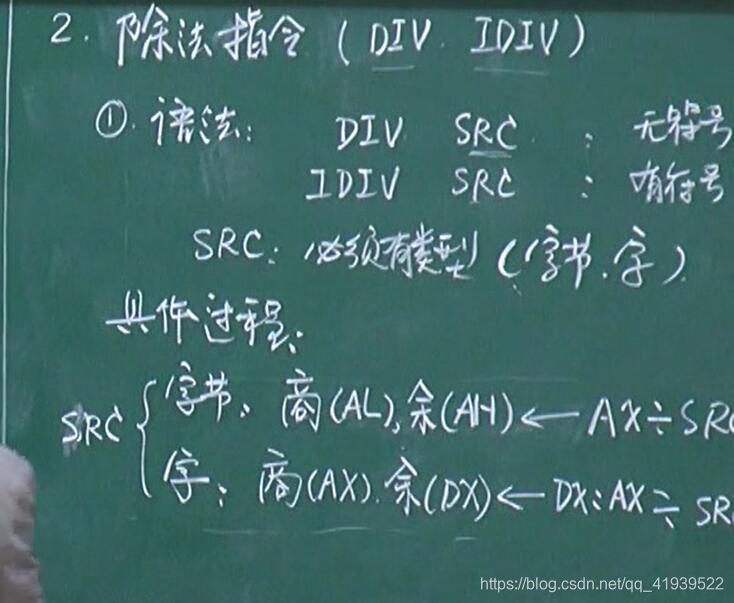 2. 除法指令 (DIV. IDIV)
①. 语法: DIV SRC : 无符号
IDIV SRC : 有符号
SRC: 必须有类型 (字节、字).
具体过程:
SRC { 字节: 商(AL), 余(AH) ← AX ÷ SRC
字: 商(AX). 余(DX) ← DX:AX ÷ SR
https://blog.csdn.net/qq_41939522